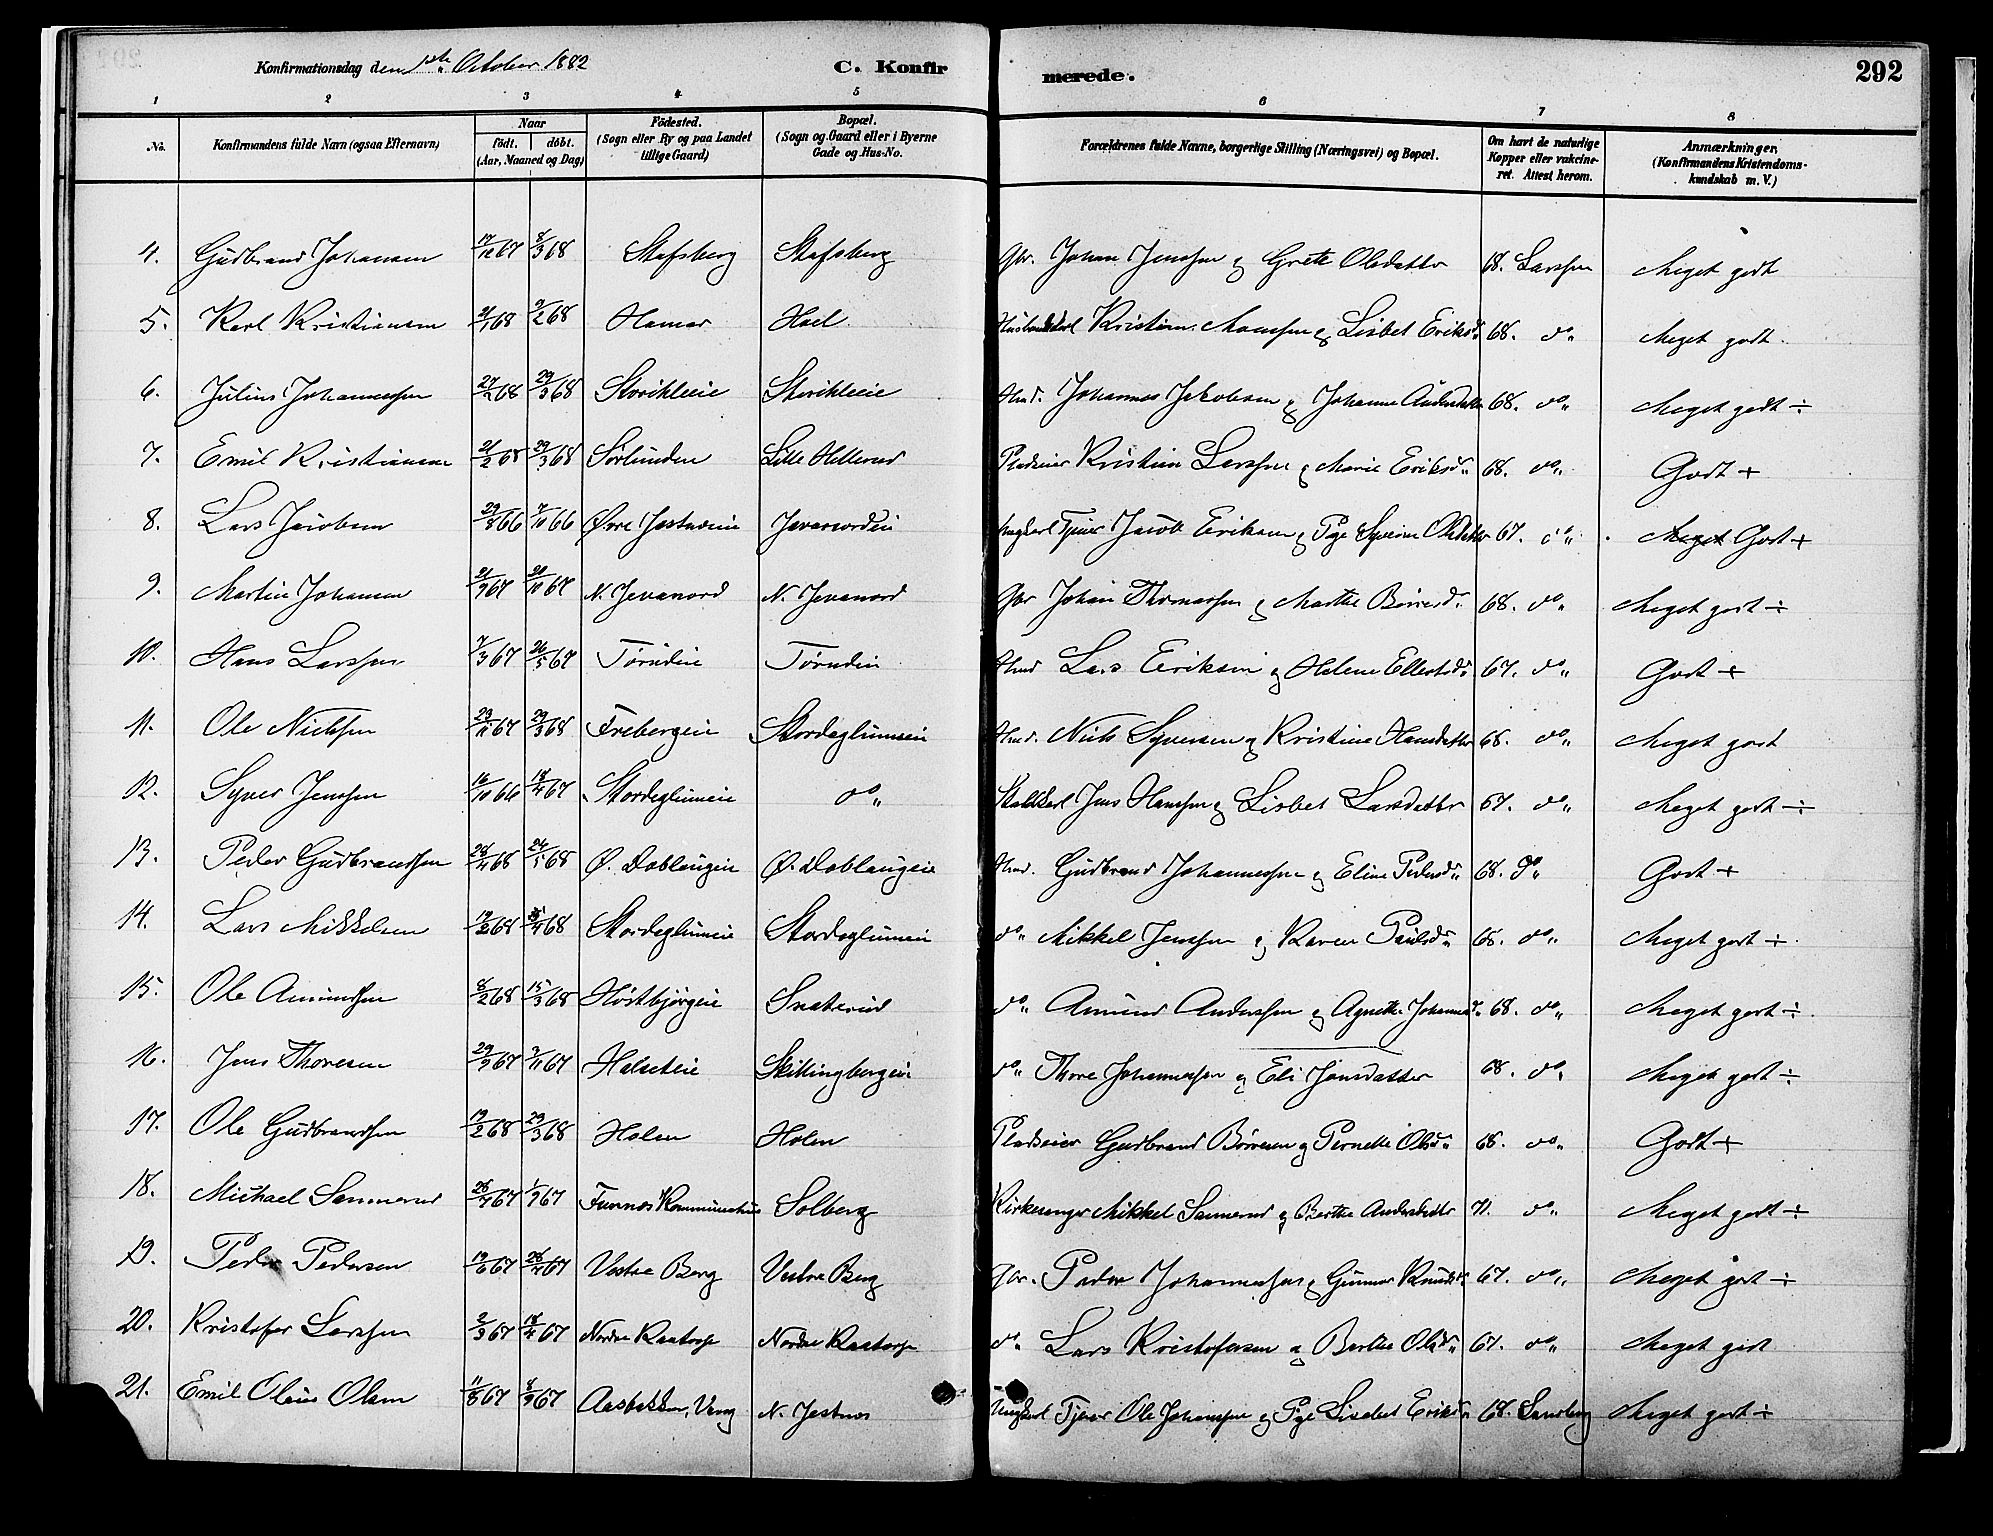 Konfirmationsdag den 1ste October 1882 C. Konfirmerede. 292
1 2 3 4 5 6 7 8
No. Konfirmandens fulde Navn (ogsaa Efternavn) Naar født. døbt. (Aar, Maaned og Dag) Födested. (Sogn eller By og paa Landet tillige Gaard) Bopæl. (Sogn og Gaard eller i Byerne Gade og Hus-No. Forældrenes fulde Navne, borgerlige Stilling (Næringsvei) og Bopæl. Om havt de naturlige Kopper eller vakcineret. Attest herom. Anmærkninger. (Konfirmandens Kristendomskundskab m. V.)
4. Gudbrand Johansen 17/12 67 8/3 68 Stafsberg Stafsberg Gbr. Johan Jenssen og Grethe Olsdatter 68. Larssen Meget godt
5. Karl Kristiansen 21/1 68 2/2 68 Hamar Hoel Kristian Monssen og Lisbet Eriksd" 68. do" Meget godt.
6. Julius Johannessen 27/2 68 29/3 68 Storihleeie Storihleeie Hmd. Johannes Jakobsen og Johanne Andersdatter 68. do" Meget godt ÷
7. Emil Kristiansen 21/2 68 29/3 68 Sørlunden Lille Hellerud Pladseier Kristian Larssen og Marie Eriksd" 68. do" Godt +
8. Lars Jacobsen 29/8 66 7/10 66 Øvre Jessneseie Jevanordeie Ungkarl Tjener Jacob Eriksen og Pige Syverine Olsdatter 67. do" Meget Godt +
9. Martin Johansen 21/9 67 20/10 67 N. Jevanord N. Jevanord Gbr Johan Thomassen og Marthe Børresd" 68. do" Meget godt ÷
10. Hans Larssen 7/3 67 26/5 67 Tørudeie Tørudeie Hmd Lars Eriksen og Helene Ellertsd" 67. do" Godt +
11. Ole Nielssen 23/11 67 29/3 68 Frebergeie Stordeglumeie Hmd. Niels Syversen og Kristine Hansdatter 68. do" Meget godt
12. Syver Jenssen 16/10 66 18/4 67 Stordeglumeie do" Jens Hanssen og Lisbet Larsdatter 67. do" Meget godt ÷
13. Peder Gudbrandssen 28/4 68 24/5 68 Ø. Doblaugeie Ø. Doblaugeie Hmd. Gudbrand Johannessen og Eline Pedersd" 68. do" Godt +
14. Lars Mikkelsen 19/2 68 4 68 Stordeglumeie Stordeglumeie do" Mikkel Jenssen og Karen Paulsd" 68. do" Meget godt ÷
15. Ole Amundssen 8/2 68 15/3 68 Høstbjørgeie Snaterud do" Amund Anderssen og Agnethe Johannesd" 68. do" Meget godt ÷
16. Jens Thoresen 29/9 67 3/11 67 Halseteie Skillingbergeie do" Thore Johannessen og Eli Jensdatter 68. do" Meget godt ÷
17. Ole Gudbrandssen 19/2 68 29/3 68 Holen Holen Pladseier Gudbrand Børresen og Pernette Olsd" 68. do" Godt +
18. Michael Sannerud 26/7 67 1/9 67 Furnes Kommunehus Solberg Kirkesanger Mikkel Sannerud og Berthe Andersdatter 71. do" Meget godt ÷
19. Peder Pedersen 19/6 67 67 Vestre Berg Vestre Berg Gbr. Peder Johannessen og Gunnor Knudsd" 67. do" Meget godt ÷
20. Kristofer Larssen 2/3 67 18/4 67 Nordre Kaatorp Nordre Kaatorp do" Lars Kristofersen og Berthe Olsd" 67. do" Meget godt
21. Emil Olaus Olsen 11/8 67 8/9 67 Aasbakken, Vang N. Jessnes Ungkarl Tjener Ole Johanssen og Pige Lisebet Eriksd" 68. Sandberg Meget godt ÷